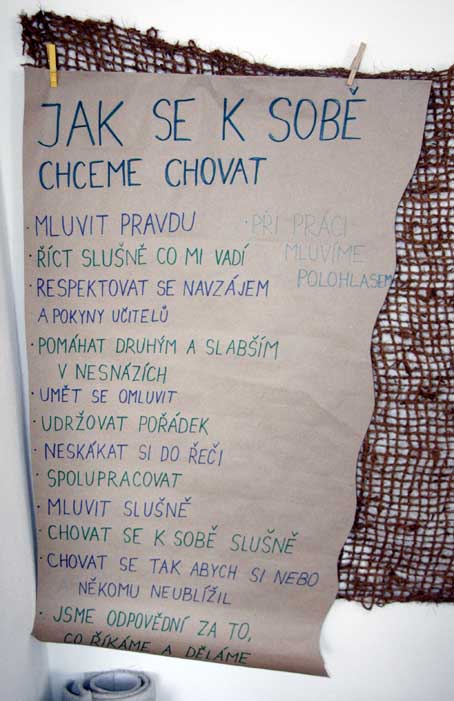 JAK SE K SOBĚ
CHCEME CHOVAT
· MLUVIT PRAVDU
· ŘÍCT SLUŠNĚ CO MI VADÍ
· RESPEKTOVAT SE NAVZÁJEM
A POKYNY UČITELŮ
· POMÁHAT DRUHÝM A SLABŠÍM
V NESNÁZÍCH
· UMĚT SE OMLUVIT
· UDRŽOVAT POŘÁDEK
· NESKÁKAT SI DO ŘEČI
· SPOLUPRACOVAT
· MLUVIT SLUŠNĚ
· CHOVAT SE K SOBĚ SLUŠNĚ
· CHOVAT SE TAK ABYCH SI NEBO
NĚKOMU NEUBLÍŽIL
· JSME ODPOVĚDNÍ ZA TO,
CO ŘÍKÁME A DĚLÁME
· PŘI PRÁCI
MLUVÍME
POLOHLASEM